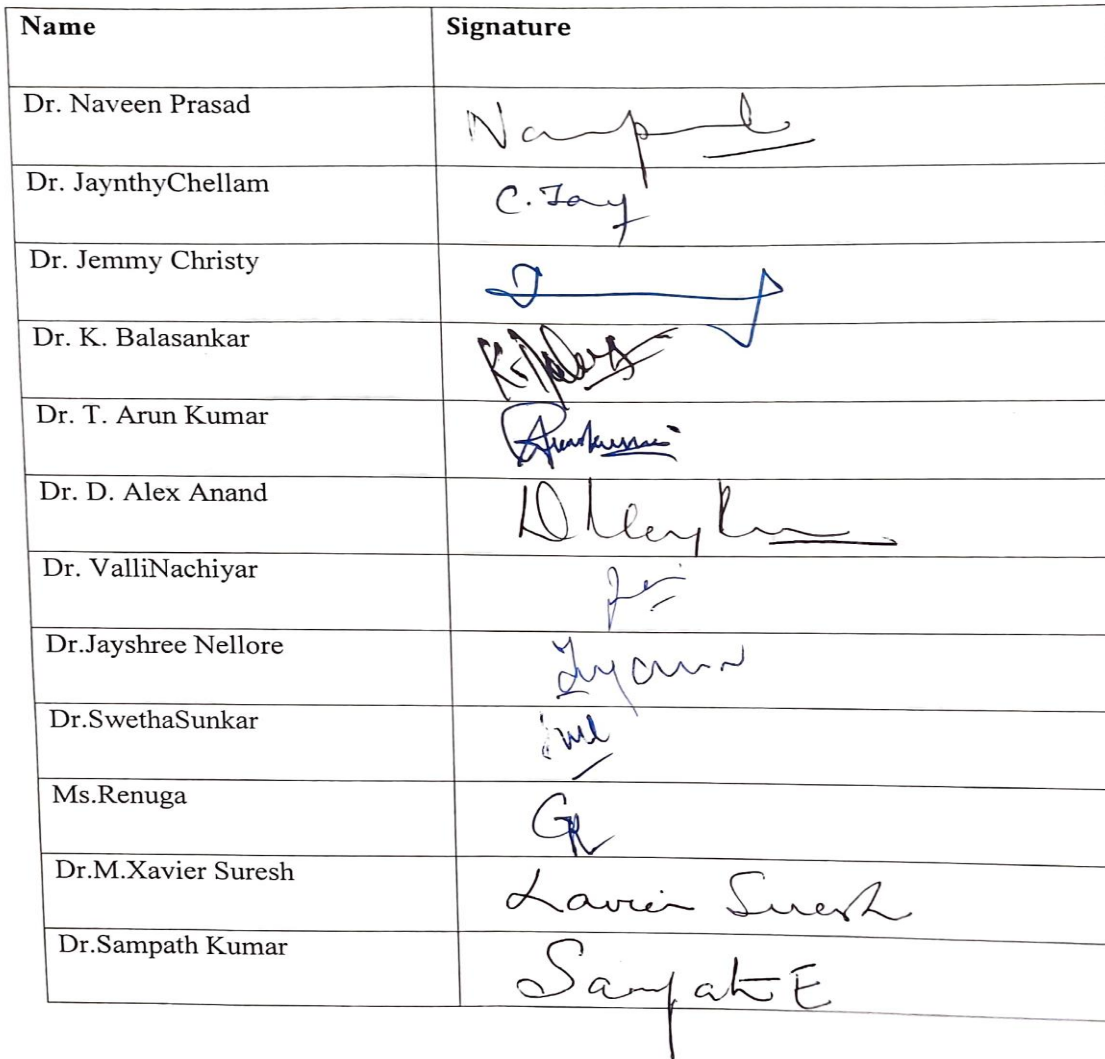 Name Signature
Dr. Naveen Prasad
Dr. JaynthyChellam C. Jay
Dr. Jemmy Christy
Dr. K. Balasankar
Dr. T. Arun Kumar Arunkumar
Dr. D. Alex Anand
Dr. ValliNachiyar
Dr.Jayshree Nellore
Dr.SwethaSunkar
Ms.Renuga GR
Dr.M.Xavier Suresh Xavier Suresh
Dr.Sampath Kumar Sampath E